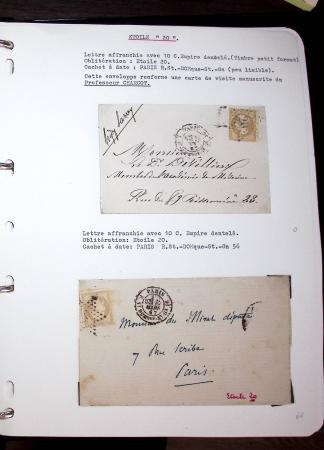 ETOILE "20".
Lettre affranchie avec 10 C.Empire dentelé.(Timbre petit format)
Oblitération : Etoile 20.
Cachet à date : PARIS R.St.-DOMque-St.-Gn (peu lisible).
Cette enveloppe renferme une carte de visite manuscrite du
Professeur CHARCOT.
Monsieur
Le Dr
Membre de l'académie de Médecine
Rue du 28.
Lettre affranchie avec 10 C. Empire dentelé.
Oblitération: Etoile 20.
Cachet à date: PARIS R.St.-DOMque-St.-Gn 56
PARIS
Monsieur du Miral député
7 Rue Scribe
Paris
Etoile 20